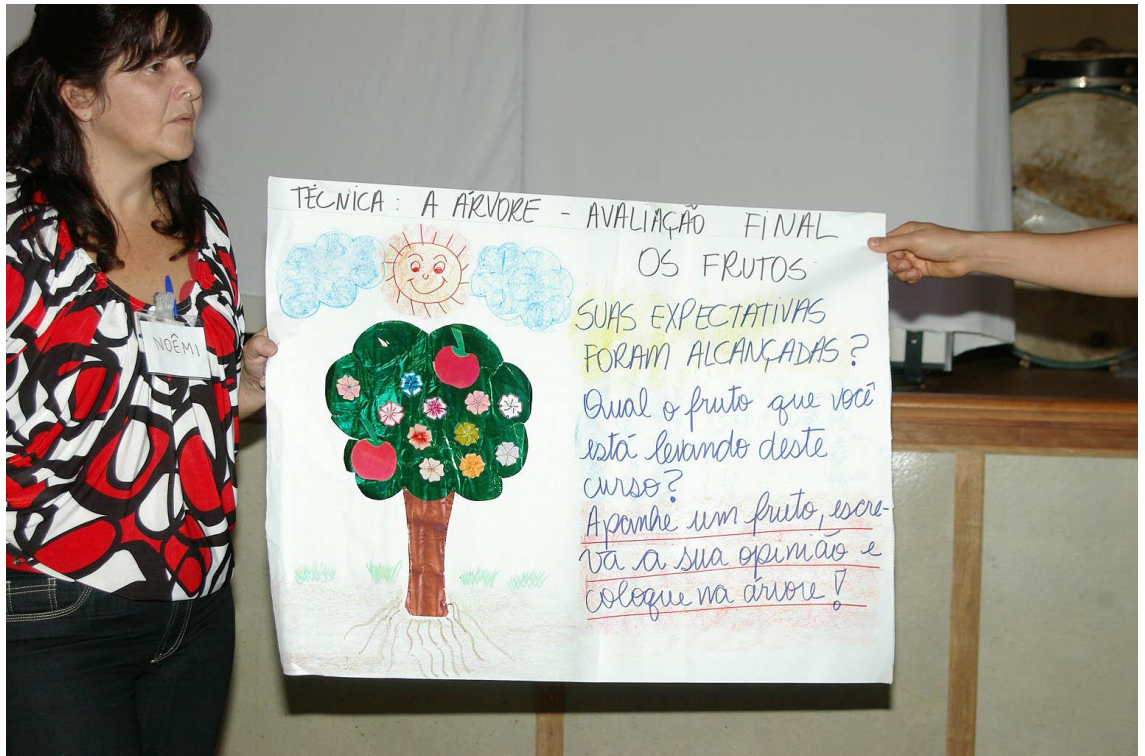 TÉCNICA: A ÁRVORE - AVALIAÇÃO FINAL
OS FRUTOS
SUAS EXPECTATIVAS
FORAM ALCANÇADAS?
Qual o fruto que você
está levando deste
curso?
Apanhe um fruto, escre-
va a sua opinião e
coloque na árvore!
NOÊMI